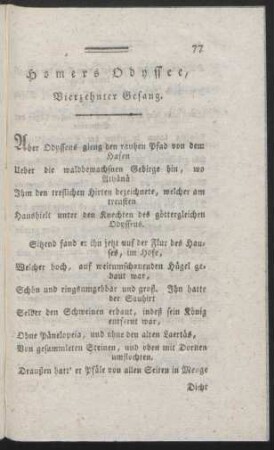 77
Homers Odyssee,
Vierzehnter Gesang.
Aber Odysseus gieng den rauhen Pfad von dem
Hafen
Ueber die waldbewachsnen Gebirge hin, wo
Athänä
Ihm den treflichen Hirten bezeichnete, welcher am
treusten
Haushielt unter den Knechten des göttergleichen
Odysseus.
Sitzend fand er ihn jetzt auf der Flur des Hau-
ses, im Hofe,
Welcher hoch, auf weitumschauenden Hügel ge-
baut war,
Schön und ringsumgehbar und groß. Ihn hatte
der Sauhirt
Selber den Schweinen erbaut, indeß sein König
entfernt war,
Ohne Pänelopeia, und ohne den alten Laertäs,
Von gesammleten Steinen, und oben mit Dornen
umflochten.
Draußen hatt' er Pfäle von allen Seiten in Menge
Dicht